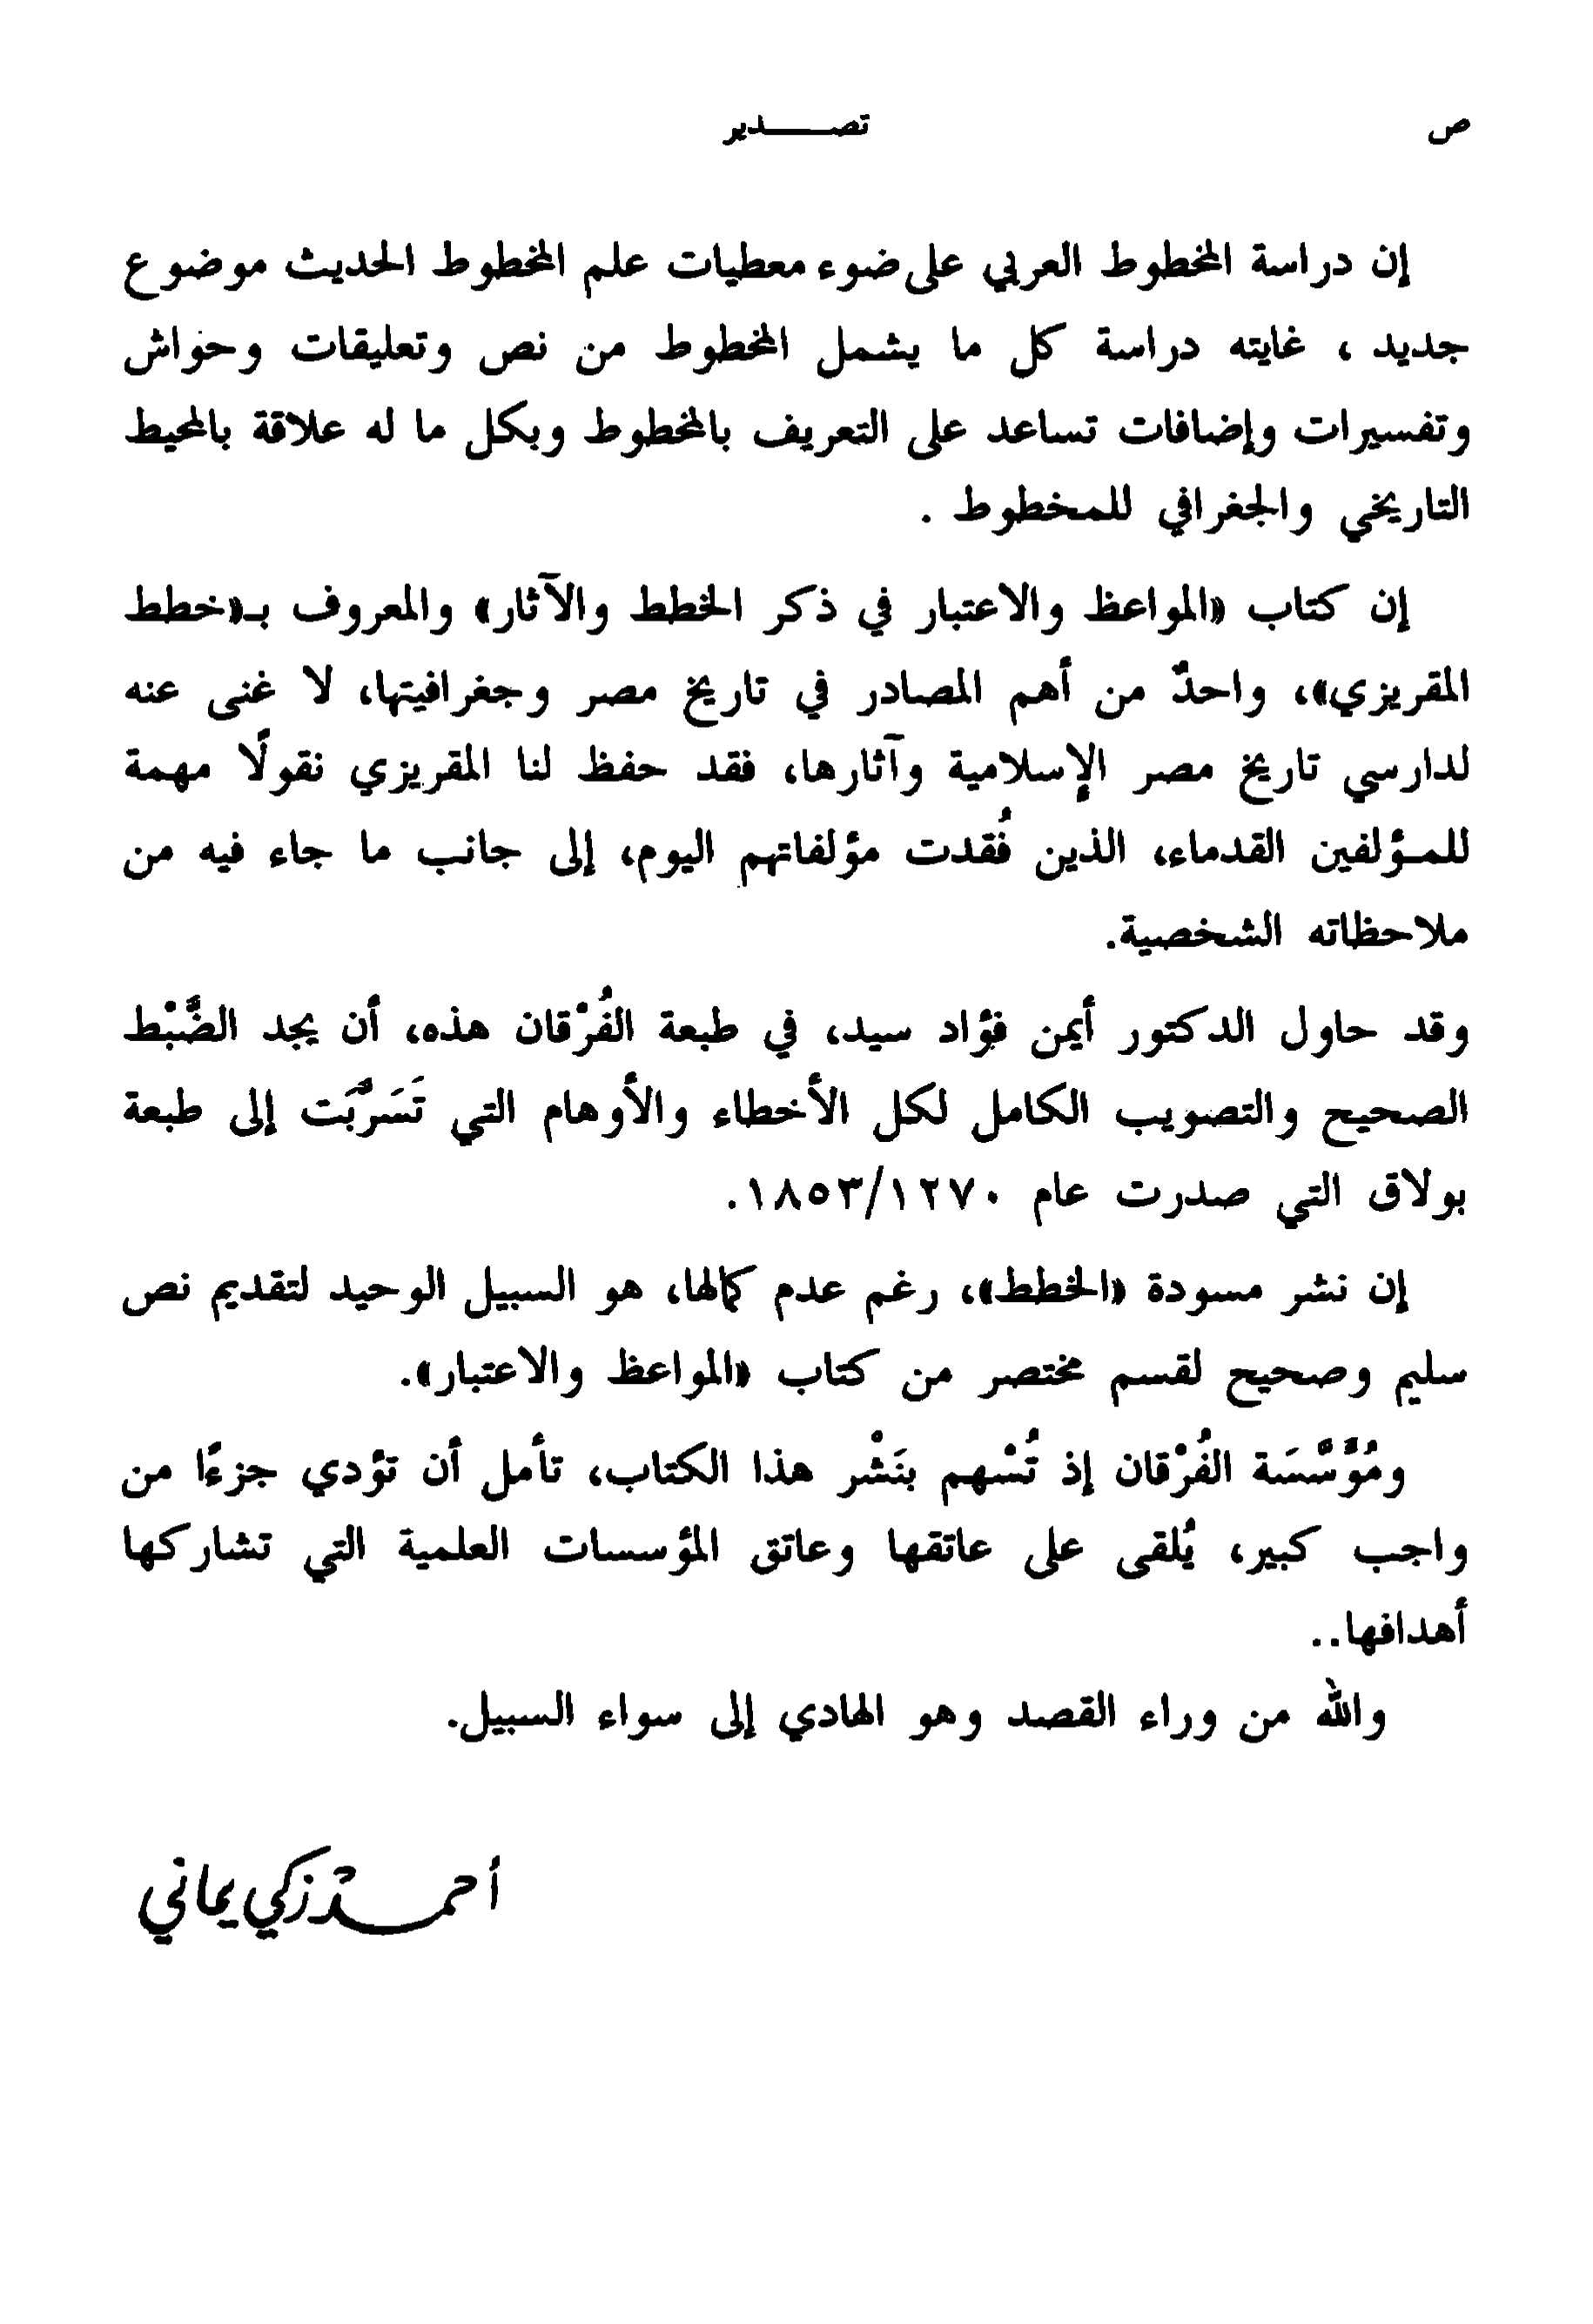 ص
تصـــــدير
إن دراسة المخطوط العربي على ضوء معطيات علم المخطوط الحديث موضوع
جديد ، غايته دراسة كل ما يشمل المخطوط من نص وتعليقات وحواش
وتفسيرات وإضافات تساعد على التعريف بالمخطوط وبكل ما له علاقة بالمحيط
التاريخي والجغرافي للمخطوط .
إن كتاب «المواعظ والاعتبار في ذكر الخطط والآثار» والمعروف بـ«خطط
المقريزي»، واحدٌ من أهم المصادر في تاريخ مصر وجغرافيتها، لا غنى عنه
لدارسي تاريخ مصر الإسلامية وآثارها، فقد حفظ لنا المقريزي نقولًا مهمة
للمـؤلفين القدماء، الذين فُقدت مؤلفاتهم اليوم، إلى جانب ما جاء فيه من
ملاحظاته الشخصية.
وقد حاول الدكتور أيمن فؤاد سيد، في طبعة الفُرْقان هذه، أن يجد الضَّبْط
الصحيح والتصويب الكامل لكل الأخطاء والأوهام التي تَسَرَّبَت إلى طبعة
بولاق التي صدرت عام ١٨٥٣/١٢٧٠.
إن نشر مسودة «الخطط»، رغم عدم كمالها، هو السبيل الوحيد لتقديم نص
سليم وصحيح لقسم مختصر من كتاب «المواعظ والاعتبار».
ومُؤَسَّسَة الفُرْقان إذ تُسْهم بنَشْر هذا الكتاب، تأمل أن تؤدي جزءًا من
واجب كبير، يُلقى على عاتقها وعاتق المؤسسات العلمية التي تشاركها
أهدافها..
والله من وراء القصد وهو الهادي إلى سواء السبيل.
أحمـــد زكي يماني